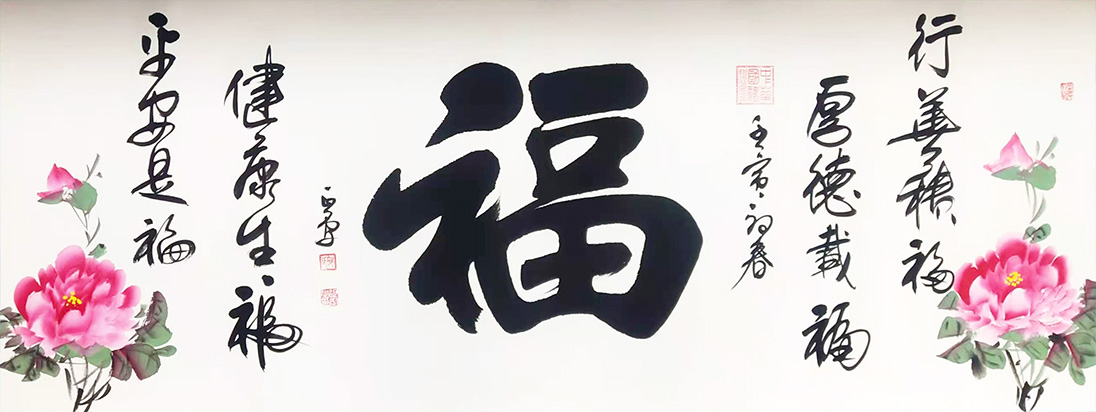 行善积福
厚德载福
壬寅初春
福
健康生福
平安是福